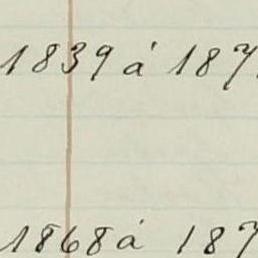 1839 á 187
1868 á 187